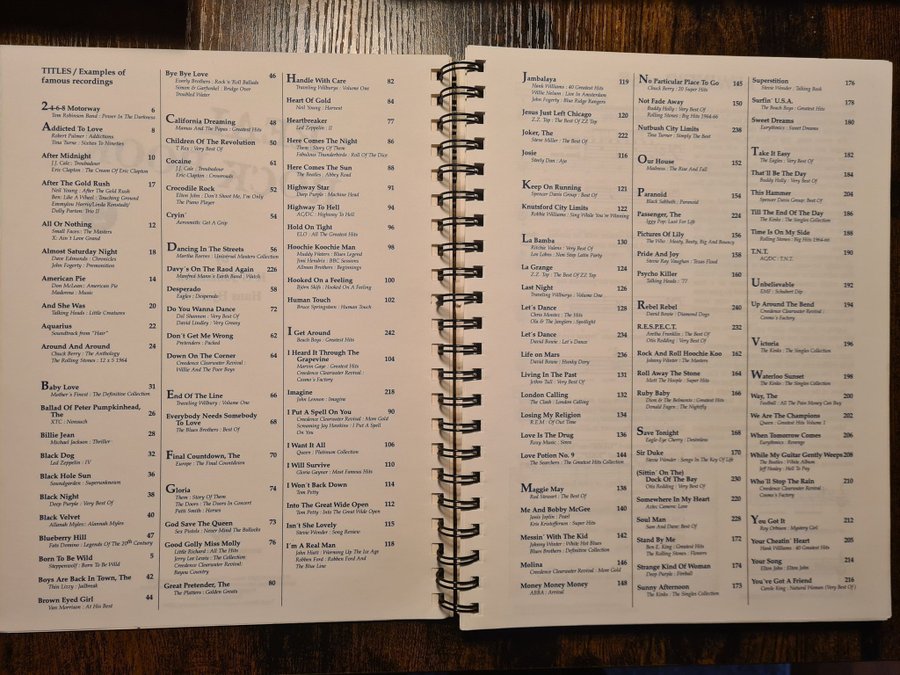 TITLES / Examples of
famous recordings
2-4-6-8 Motorway 6
Tom Robinson Band : Power In The Darkness
Addicted To Love 8
Robert Palmer : Addictions
Tina Turner : Sixties To Nineties
After Midnight 10
J.J. Cale : Troubadour
Eric Clapton : The Cream Of Eric Clapton
After The Gold Rush 17
Neil Young : After The Gold Rush
Ben : Like A Wheel : Touching Ground
Emmylou Harris/Linda Ronstadt/
Dolly Parton: Trio II
All Or Nothing 12
Small Faces : The Masters
X: Ain't Love Grand
Almost Saturday Night 18
Dave Edmunds : Chronicles
John Fogerty : Premonition
American Pie 14
Don McLean: American Pie
Madonna : Music
And She Was 20
Talking Heads : Little Creatures
Aquarius 22
Soundtrack from "Hair"
Around And Around 24
Chuck Berry : The Anthology
The Rolling Stones : 12 x 5 1964
Baby Love 31
Mother's Finest : The Definitive Collection
Ballad Of Peter Pumpkinhead,
The 26
XTC : Nonsuch
Billie Jean 28
Michael Jackson : Thriller
Black Dog 32
Led Zeppelin : IV
Black Hole Sun 36
Soundgarden : Superunknown
Black Night 38
Deep Purple : Very Best Of
Black Velvet 40
Allanah Myles : Alannah Myles
Blueberry Hill 47
Fats Domino : Legends Of The 20th Century
Born To Be Wild 5
Steppenwolf : Born To Be Wild
Boys Are Back In Town, The 42
Thin Lizzy : Jailbreak
Brown Eyed Girl 44
Van Morrison : At His Best
Bye Bye Love 46
Everly Brothers : Rock 'n' Roll Ballads
Simon & Garfunkel : Bridge Over
Troubled Water
California Dreaming 48
Mamas and The Papas : Greatest Hits
Children Of The Revolution 50
T Rex : Very Best Of
Cocaine 61
J.J. Cale : Troubadour
Eric Clapton : Crossroads
Crocodile Rock 52
Elton John : Don't Shoot Me, I'm Only
The Piano Player
Cryin' 54
Aerosmith: Get A Grip
Dancing In The Streets 56
Martha Reeves : Universal Masters Collection
Davy's On The Raod Again 226
Manfred Mann's Earth Band : Watch
Desperado 58
Eagles : Desperado
Do You Wanna Dance 72
Del Shannon : Very Best Of
David Lindley : Very Greasy
Don't Get Me Wrong 62
Pretenders : Packed
Down On The Corner 64
Creedence Clearwater Revival :
Willie And The Poor Boys
End Of The Line 66
Travelling Wilburys : Volume One
Everybody Needs Somebody
To Love 68
The Blues Brothers : Best Of
Final Countdown, The 70
Europe : The Final Countdown
Gloria 74
Them : Story Of Them
The Doors : The Doors In Concert
Patti Smith : Horses
God Save The Queen 73
Sex Pistols : Never Mind The Bollocks
Good Golly Miss Molly 76
Little Richard : All The Hits
Jerry Lee Lewis : The Collection
Creedence Clearwater Revival :
Bayou Country
Great Pretender, The 80
The Platters : Golden Greats
Handle With Care 82
Traveling Wilburys : Volume One
Heart Of Gold 84
Neil Young : Harvest
Heartbreaker 77
Led Zeppelin : II
Here Comes The Night 86
Them : Story Of Them
Fabulous Thunderbirds : Roll Of The Dice
Here Comes the Sun 88
The Beatles : Abbey Road
Highway Star 91
Deep Purple : Machine Head
Highway To Hell 94
AC/DC : Highway To Hell
Hold On Tight 96
ELO : All The Greatest Hits
Hoochie Koochie Man 98
Muddy Waters : Blues Legend
Jimi Hendrix : BBC Sessions
Allman Brothers : Beginnings
Hooked On a Feeling 100
Björn Skifs : Hooked On A Feeling
Human Touch 102
Bruce Springsteen : Human Touch
I Get Around 242
Beach Boys : Greatest Hits
I Heard It Through The
Grapevine 104
Marvin Gaye : Greatest Hits
Creedence Clearwater Revival :
Cosmo's Factory
Imagine 218
John Lennon : Imagine
I Put A Spell On You 90
Creedence Clearwater Revival : More Gold
Screaming Jay Hawkins : I Put A Spell
On You
I Want It All 106
Queen : Platinum Collection
I Will Survive 110
Gloria Gaynor : Most Famous Hits
I Won't Back Down 114
Tom Petty
Into The Great Wide Open 112
Tom Petty : Into The Great Wide Open
Isn't She Lovely 115
Stevie Wonder : Song Review
I'm A Real Man 118
John Hiatt : Warming Up To The Ice Age
Robben Ford : Robben Ford And
The Blue Line
Jambalaya 119
Hank Williams : 40 Greatest Hits
Willie Nelson : Live In Amsterdam
John Fogerty : Blue Ridge Rangers
Jesus Just Left Chicago 220
Z.Z. Top : The Best Of ZZ Top
Joker, The 222
Steve Miller : The Best Of
Josie 116
Steely Dan : Aja
Keep On Running 121
Spencer Davis Group: Best Of
Knutsford City Limits 122
Robbie Williams : Sing While You're Winning
La Bamba 130
Ritchie Valens : Very Best Of
Los Lobos : Non Stop Latin Party
La Grange 124
Z.Z. Top : The Best Of ZZ Top
Last Night 126
Traveling Wilburys : Volume One
Let's Dance 128
Chris Montez : The Hits
Ola & The Janglers : Spotlight
Let's Dance 234
David Bowie : Let's Dance
Life on Mars 236
David Bowie : Hunky Dory
Living In The Past 131
Jethro Tull : Very Best Of
London Calling 132
The Clash : London Calling
Losing My Religion 134
R.E.M : Out Of Time
Love Is The Drug 136
Roxy Music : Siren
Love Potion No. 9 144
The Searchers : The Greatest Hits Collection
Maggie May 138
Rod Stewart : The Best Of
Me And Bobby McGee 140
Janis Joplin : Pearl
Kris Kristofferson : Super Hits
Messin' With The Kid 142
Johnny Winter : White Hot Blues
Blues Brothers : Definitive Collection
Molina 146
Creedence Clearwater Revival : More Gold
Money Money Money 148
ABBA : Arrival
No Particular Place To Go 145
Chuck Berry : 20 Super Hits
Not Fade Away 150
Buddy Holly : Very Best Of
Rolling Stones : Big Hits 1964-66
Nutbush City Limits 238
Tina Turner : Simply The Best
Our House 152
Madness : The Rise And Fall
Paranoid 154
Black Sabbath : Paranoid
Passenger, The 224
Iggy Pop: Lust For Life
Pictures Of Lily 156
The Who : Meaty, Beaty, Big And Bouncy
Pride And Joy 158
Stevie Ray Vaughan : Texas Flood
Psycho Killer 160
Talking Heads : '77
Rebel Rebel 240
David Bowie : Diamond Dogs
R.E.S.P.E.C.T. 232
Aretha Franklin : The Best Of
Otis Redding : Very Best Of
Rock And Roll Hoochie Koo 162
Johnny Winter : The Masters
Roll Away The Stone 164
Mott The Hoople : Super Hits
Ruby Baby 166
Dion & The Belmonts : Greatest Hits
Donald Fagen : The Nightfly
Save Tonight 168
Eagle-Eye Cherry : Desireless
Sir Duke 170
Stevie Wonder : Songs In The Key Of Life
(Sittin' On The)
Dock Of The Bay 230
Otis Redding : Very Best Of
Somewhere In My Heart 220
Aztec Camera: Love
Soul Man 228
Sam And Dave: Best Of
Stand By Me 172
Ben E. King : Greatest Hits
The Rolling Stones : Flowers
Strange Kind Of Woman 174
Deep Purple : Fireball
Sunny Afternoon 173
The Kinks : The Singles Collection
Superstition 176
Stevie Wonder : Talking Book
Surfin' U.S.A. 178
The Beach Boys : Greatest Hits
Sweet Dreams 180
Eurythmics : Sweet Dreams
Take It Easy 182
The Eagles : Very Best Of
That'll Be The Day 184
Buddy Holly : Very Best Of
This Hammer 204
Spencer Davis Group: Best Of
Till The End Of The Day 186
The Kinks : The Singles Collection
Time Is On My Side 188
Rolling Stones : Big Hits 1964-66
T.N.T. 190
AC/DC : T.N.T.
Unbelievable 192
EMF : Schubert Dip
Up Around The Bend 194
Creedence Clearwater Revival :
Cosmo's Factory
Victoria 196
The Kinks : The Singles Collection
Waterloo Sunset 198
The Kinks : The Singles Collection
Way, The 200
Fastball : All The Pain Money Can Buy
We Are The Champions 202
Queen : Greatest Hits Volume 1
When Tomorrow Comes 206
Eurythmics : Revenge
While My Guitar Gently Weeps 208
The Beatles : White Album
Jeff Healey : Hell To Pay
Who'll Stop The Rain 210
Creedence Clearwater Revival :
Cosmo's Factory
You Got It 212
Roy Orbison : Mystery Girl
Your Cheatin' Heart 205
Hank Williams : 40 Greatest Hits
Your Song 214
Elton John : Elton John
You've Got A Friend 216
Carole King : Natural Woman (Very Best Of)